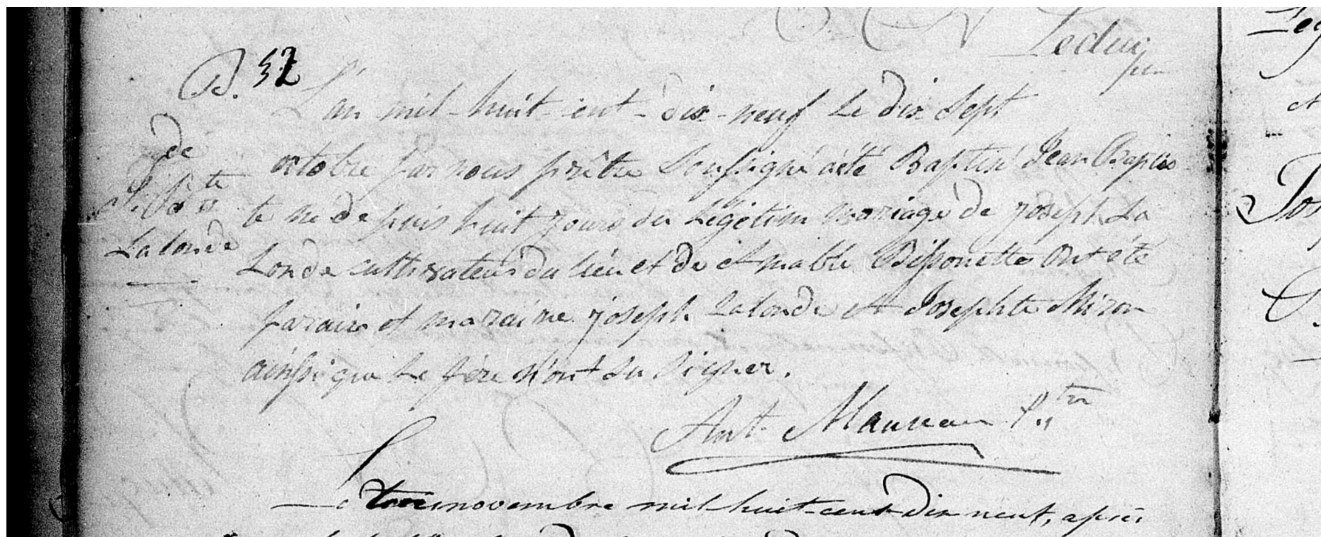 Leduc
B. 52
L'an mil-huit-cent-dix-neuf le dix sept
de
J. Bte
Lalonde
octobre par nous prêtre soussigné a été Baptisé Jean Baptis
te né depuis huit jours du légitim mariage de Joseph La
Londe cultivateur du lieu et de Amable Bissonette ont été
parain et maraine Joseph Lalonde et Josephte Miron
ainsi que le père n'ont su signer.
Ant. Manseau Ptre
Le novembre mil-huit-cent-dix neuf, après